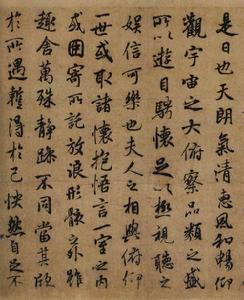 是日也天朗氣清惠風和暢仰
觀宇宙之大俯察品類之盛
所以遊目騁懷足以極視聽之
娛信可樂也夫人之相與俯仰
一世或取諸懷抱悟言一室之內
或因寄所託放浪形骸之外雖
趣舍萬殊靜躁不同當其欣
於所遇暫得於己快然自足不